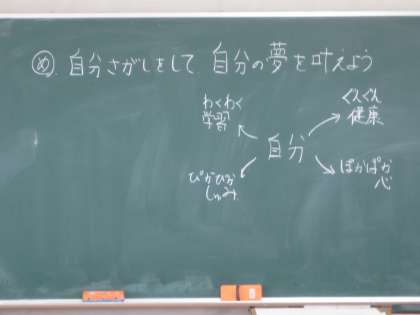 め 自分さがしをして 自分の夢を叶えよう
わくわく
学習
ぐんぐん
健康
自分
ぴかぴか
しゅみ
ぽかぽか
心